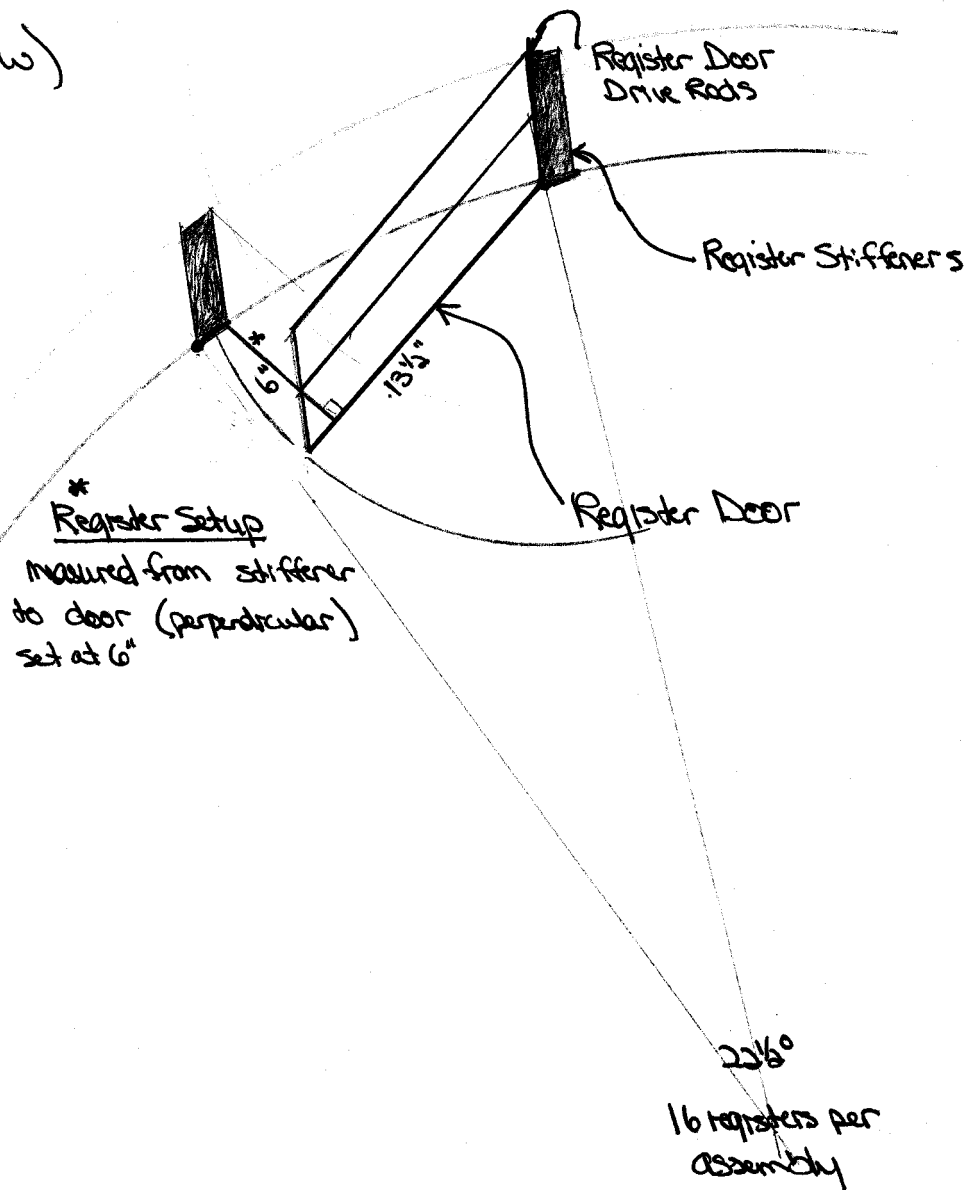 w)
Register Door
Drive Rods
Register Stiffeners
*
6"
13½"
Register Door
*
Register Setup
measured from stiffener
to door (perpendicular)
set at 6"
22½°
16 registers per
assembly